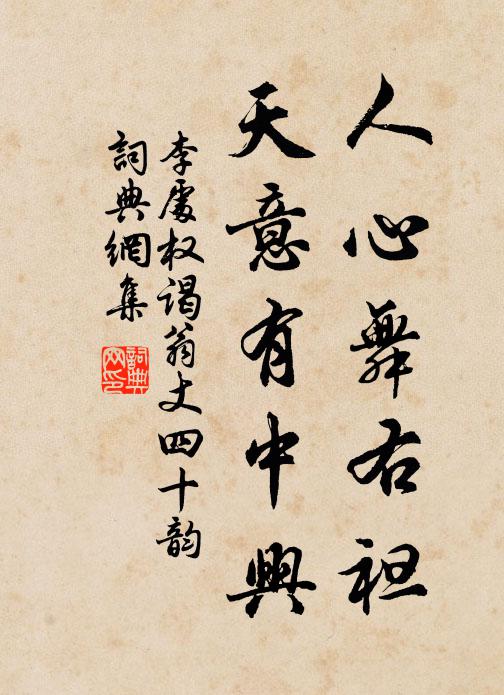 人心舞右袒
天意有中興
李處权謁翁丈四十韵
詞典網集
詞典
网印